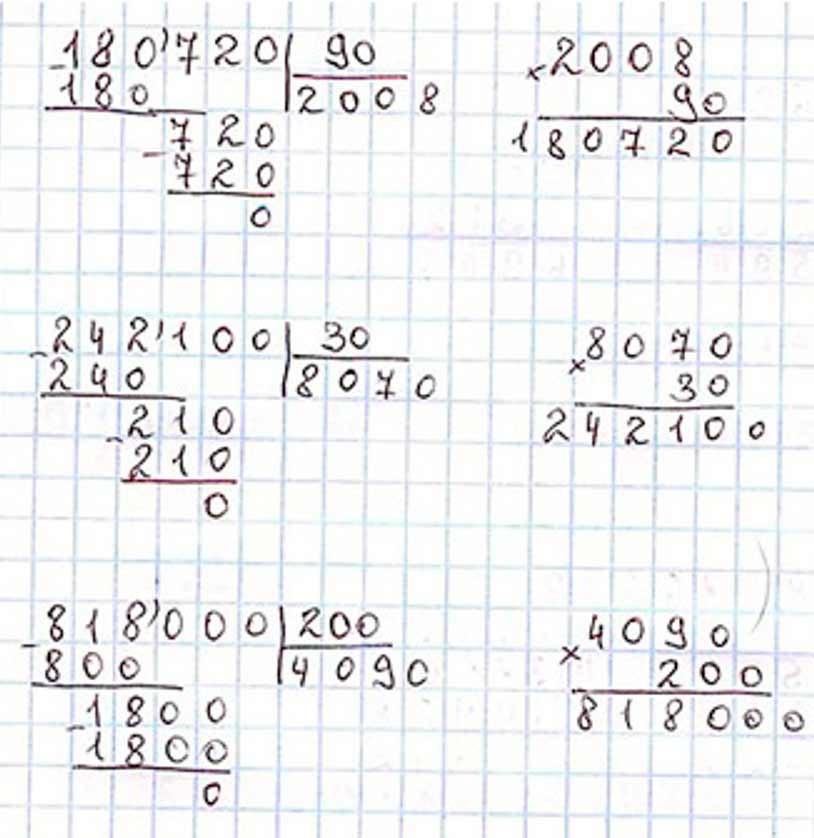 180'720 90
-180 2008
720
-720
0
×2008
90
180720
242'100 30
-240 8070
210
-210
0
×8070
30
242100
818'000 200
-800 4090
1800
-1800
0
×4090
200
818000